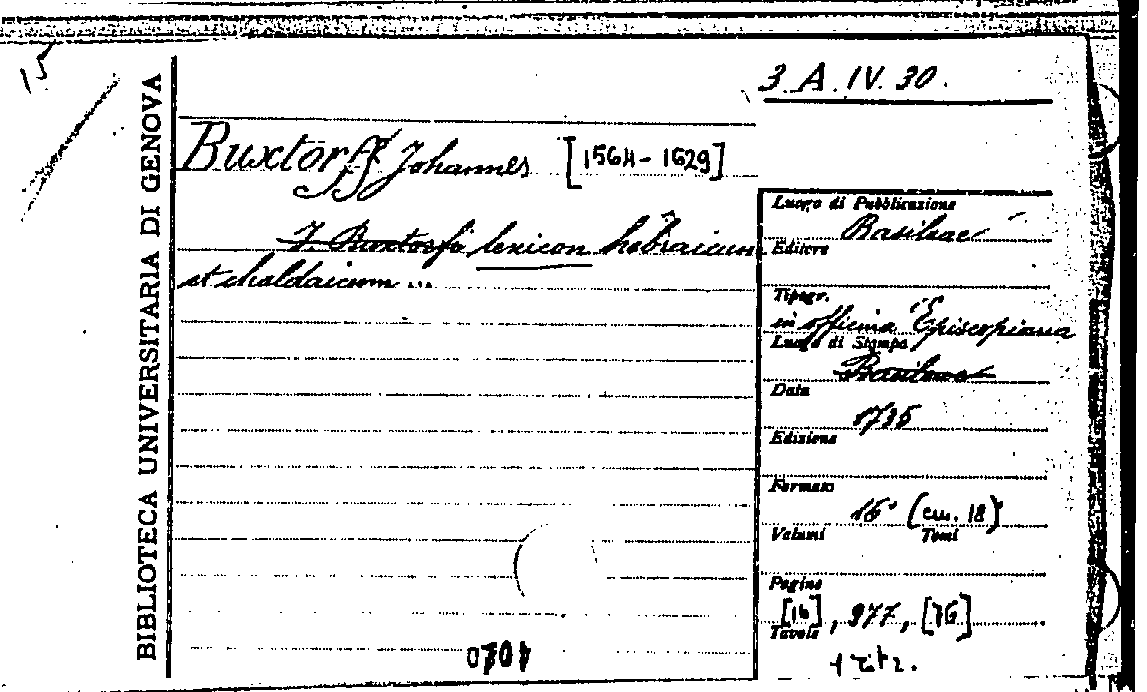 15
3 A. IV. 30.
BIBLIOTECA UNIVERSITARIA DI GENOVA
Buxtorff Johannes [1564 - 1629]
J. Buxtorfii lexicon hebraicum
et chaldaicum ...
Luogo di Pubblicazione
Basileae
Editore
Tipogr.
in officina Episcopiana
Luogo di Stampa
Basileae
Data
1735
Edizione
Formato
16° (cm. 18)
Volumi Tomi
Pagine
[16], 977, [76]
Tavole